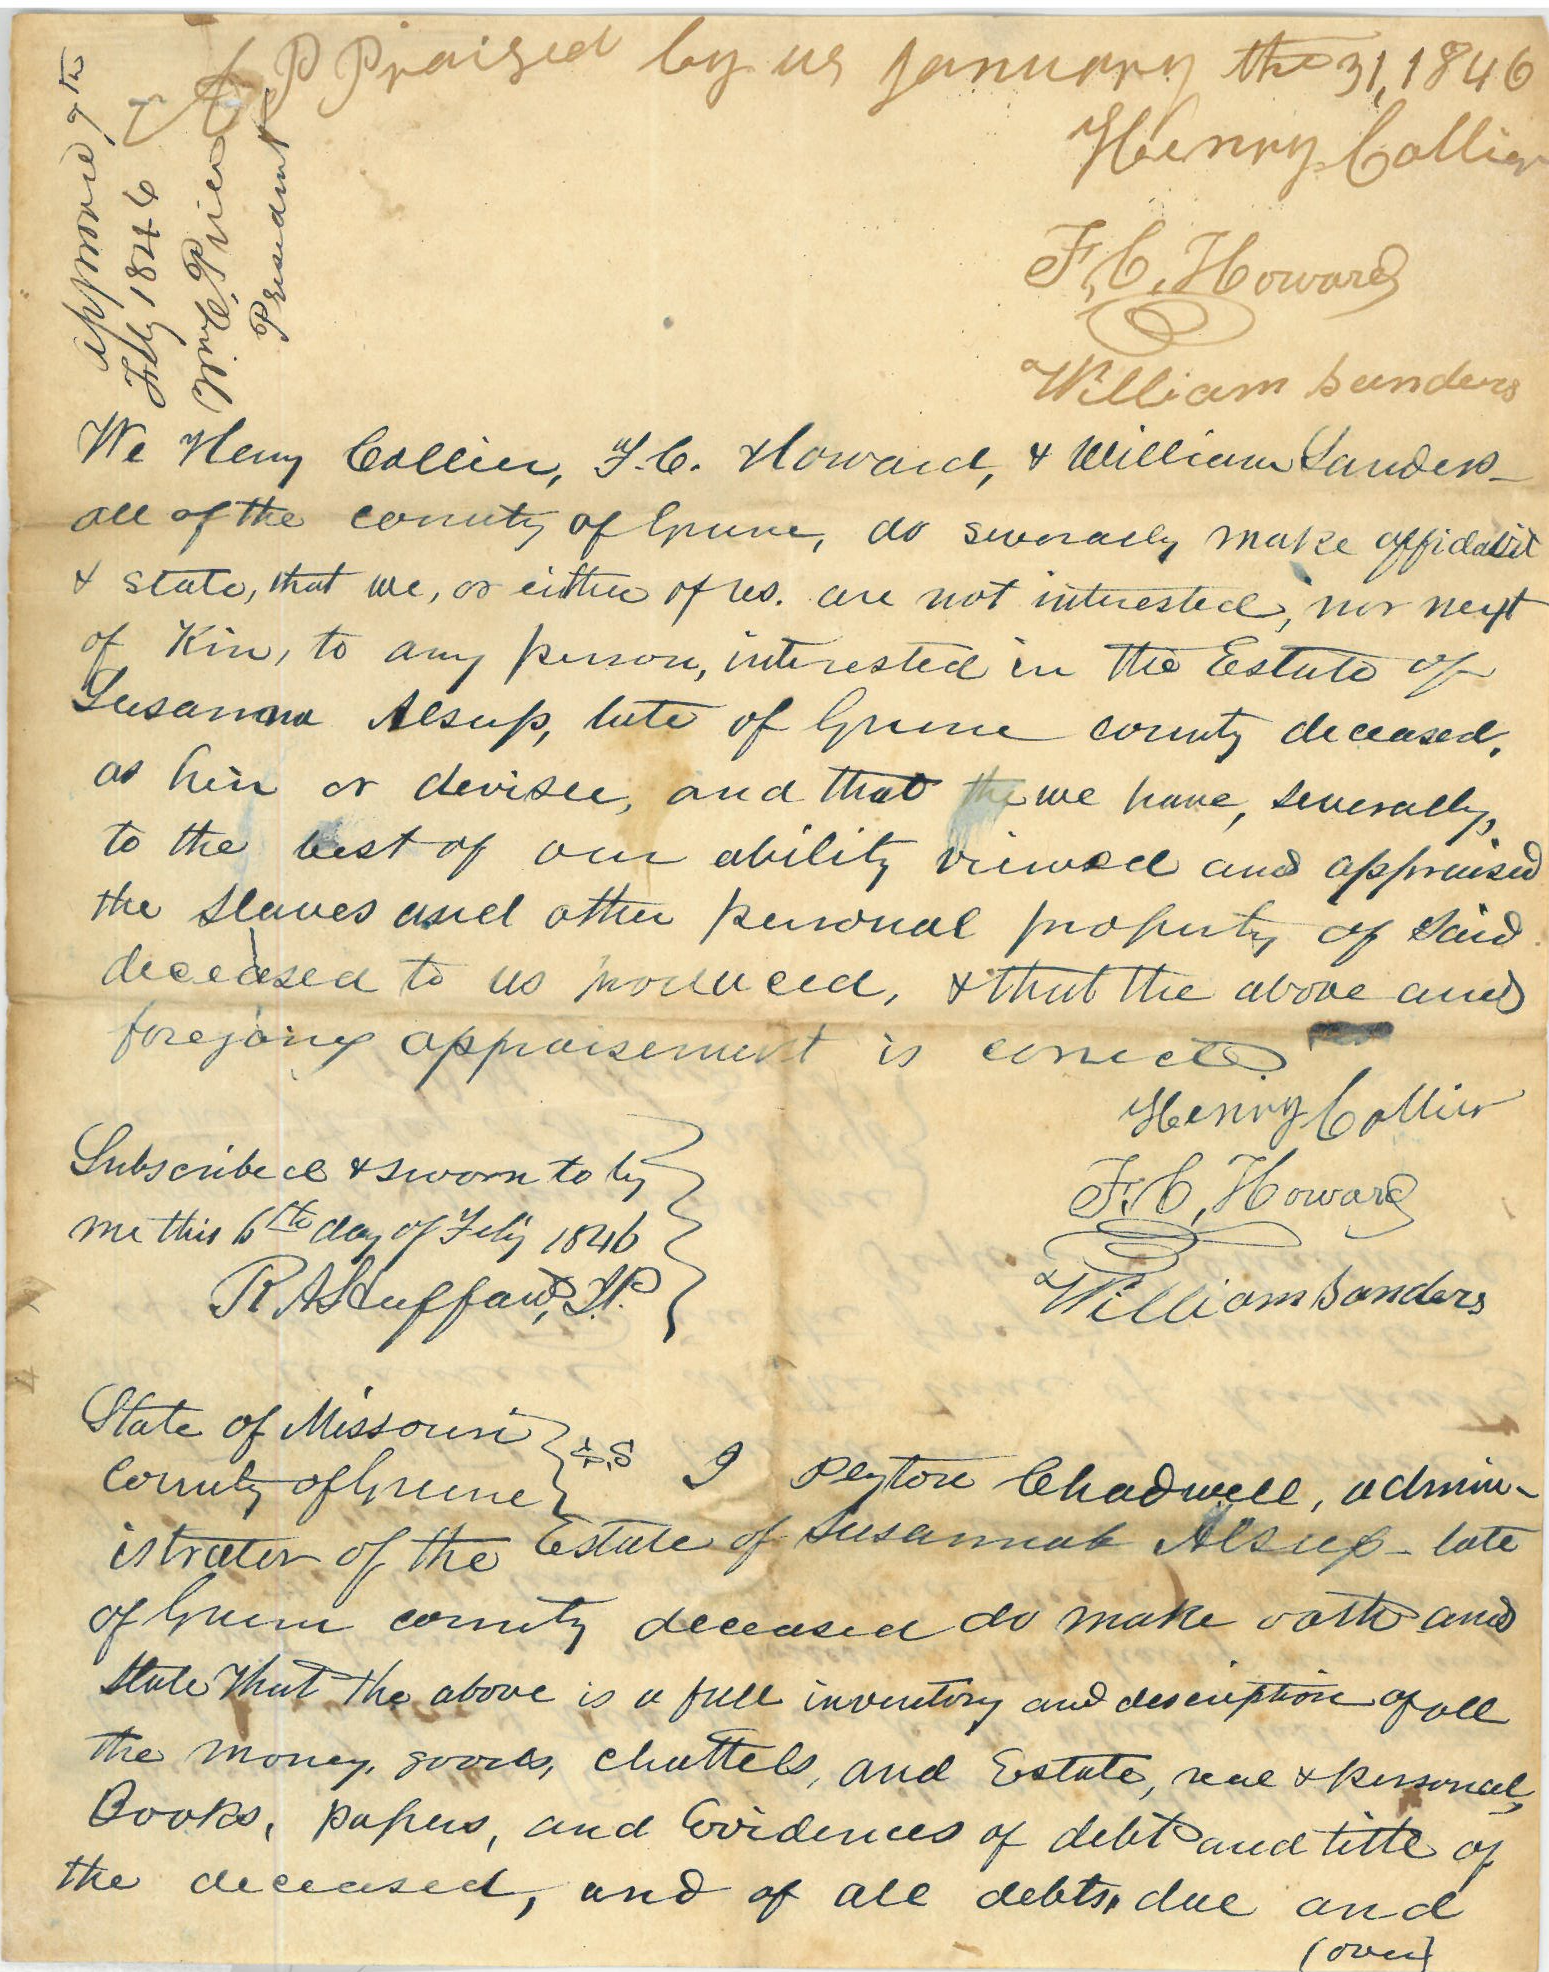 Appraised by us January the 31, 1846
Henry Collier
F. C. Howard
William Sanders
approved 7th
Feby 1846
Wm C. Price
Presedant
We Henry Collier, F. C. Howard, & William Sanders
all of the county of Greene, do severally make affidavit
& state, that we, or either of us. are not interested, nor next
of Kin, to any person, interested in the Estate of
Susanna Alsup, late of Greene county deceased,
as heir or devisee, and that the we have, severally,
to the best of our ability viewed and appraised
the slaves and other personal property of said
deceased to us produced, & that the above and
foregoing appraisement is correct.
Henry Collier
F. C. Howard
William Sanders
Subscribed & sworn to by
me this 6th day of Feby 1846
R A Huffard, J.P.
State of Missouri
County of Greene } S.S I Peyton Chadwell, admin-
istrator of the Estate of Susannah Alsup - late
of Greene county deceased do make oath and
state that the above is a full inventory and description of all
the money, goods, chattels, and Estate, real & personal,
Books, papers, and Evidences of debt and title of
the deceased, and of all debts, due and
(over)